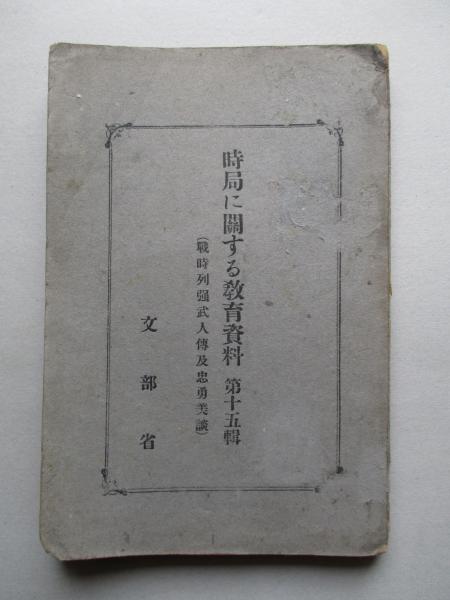 時局に關する敎育資料 第十五輯
(戰時列强武人傳及忠勇美談)
文部省